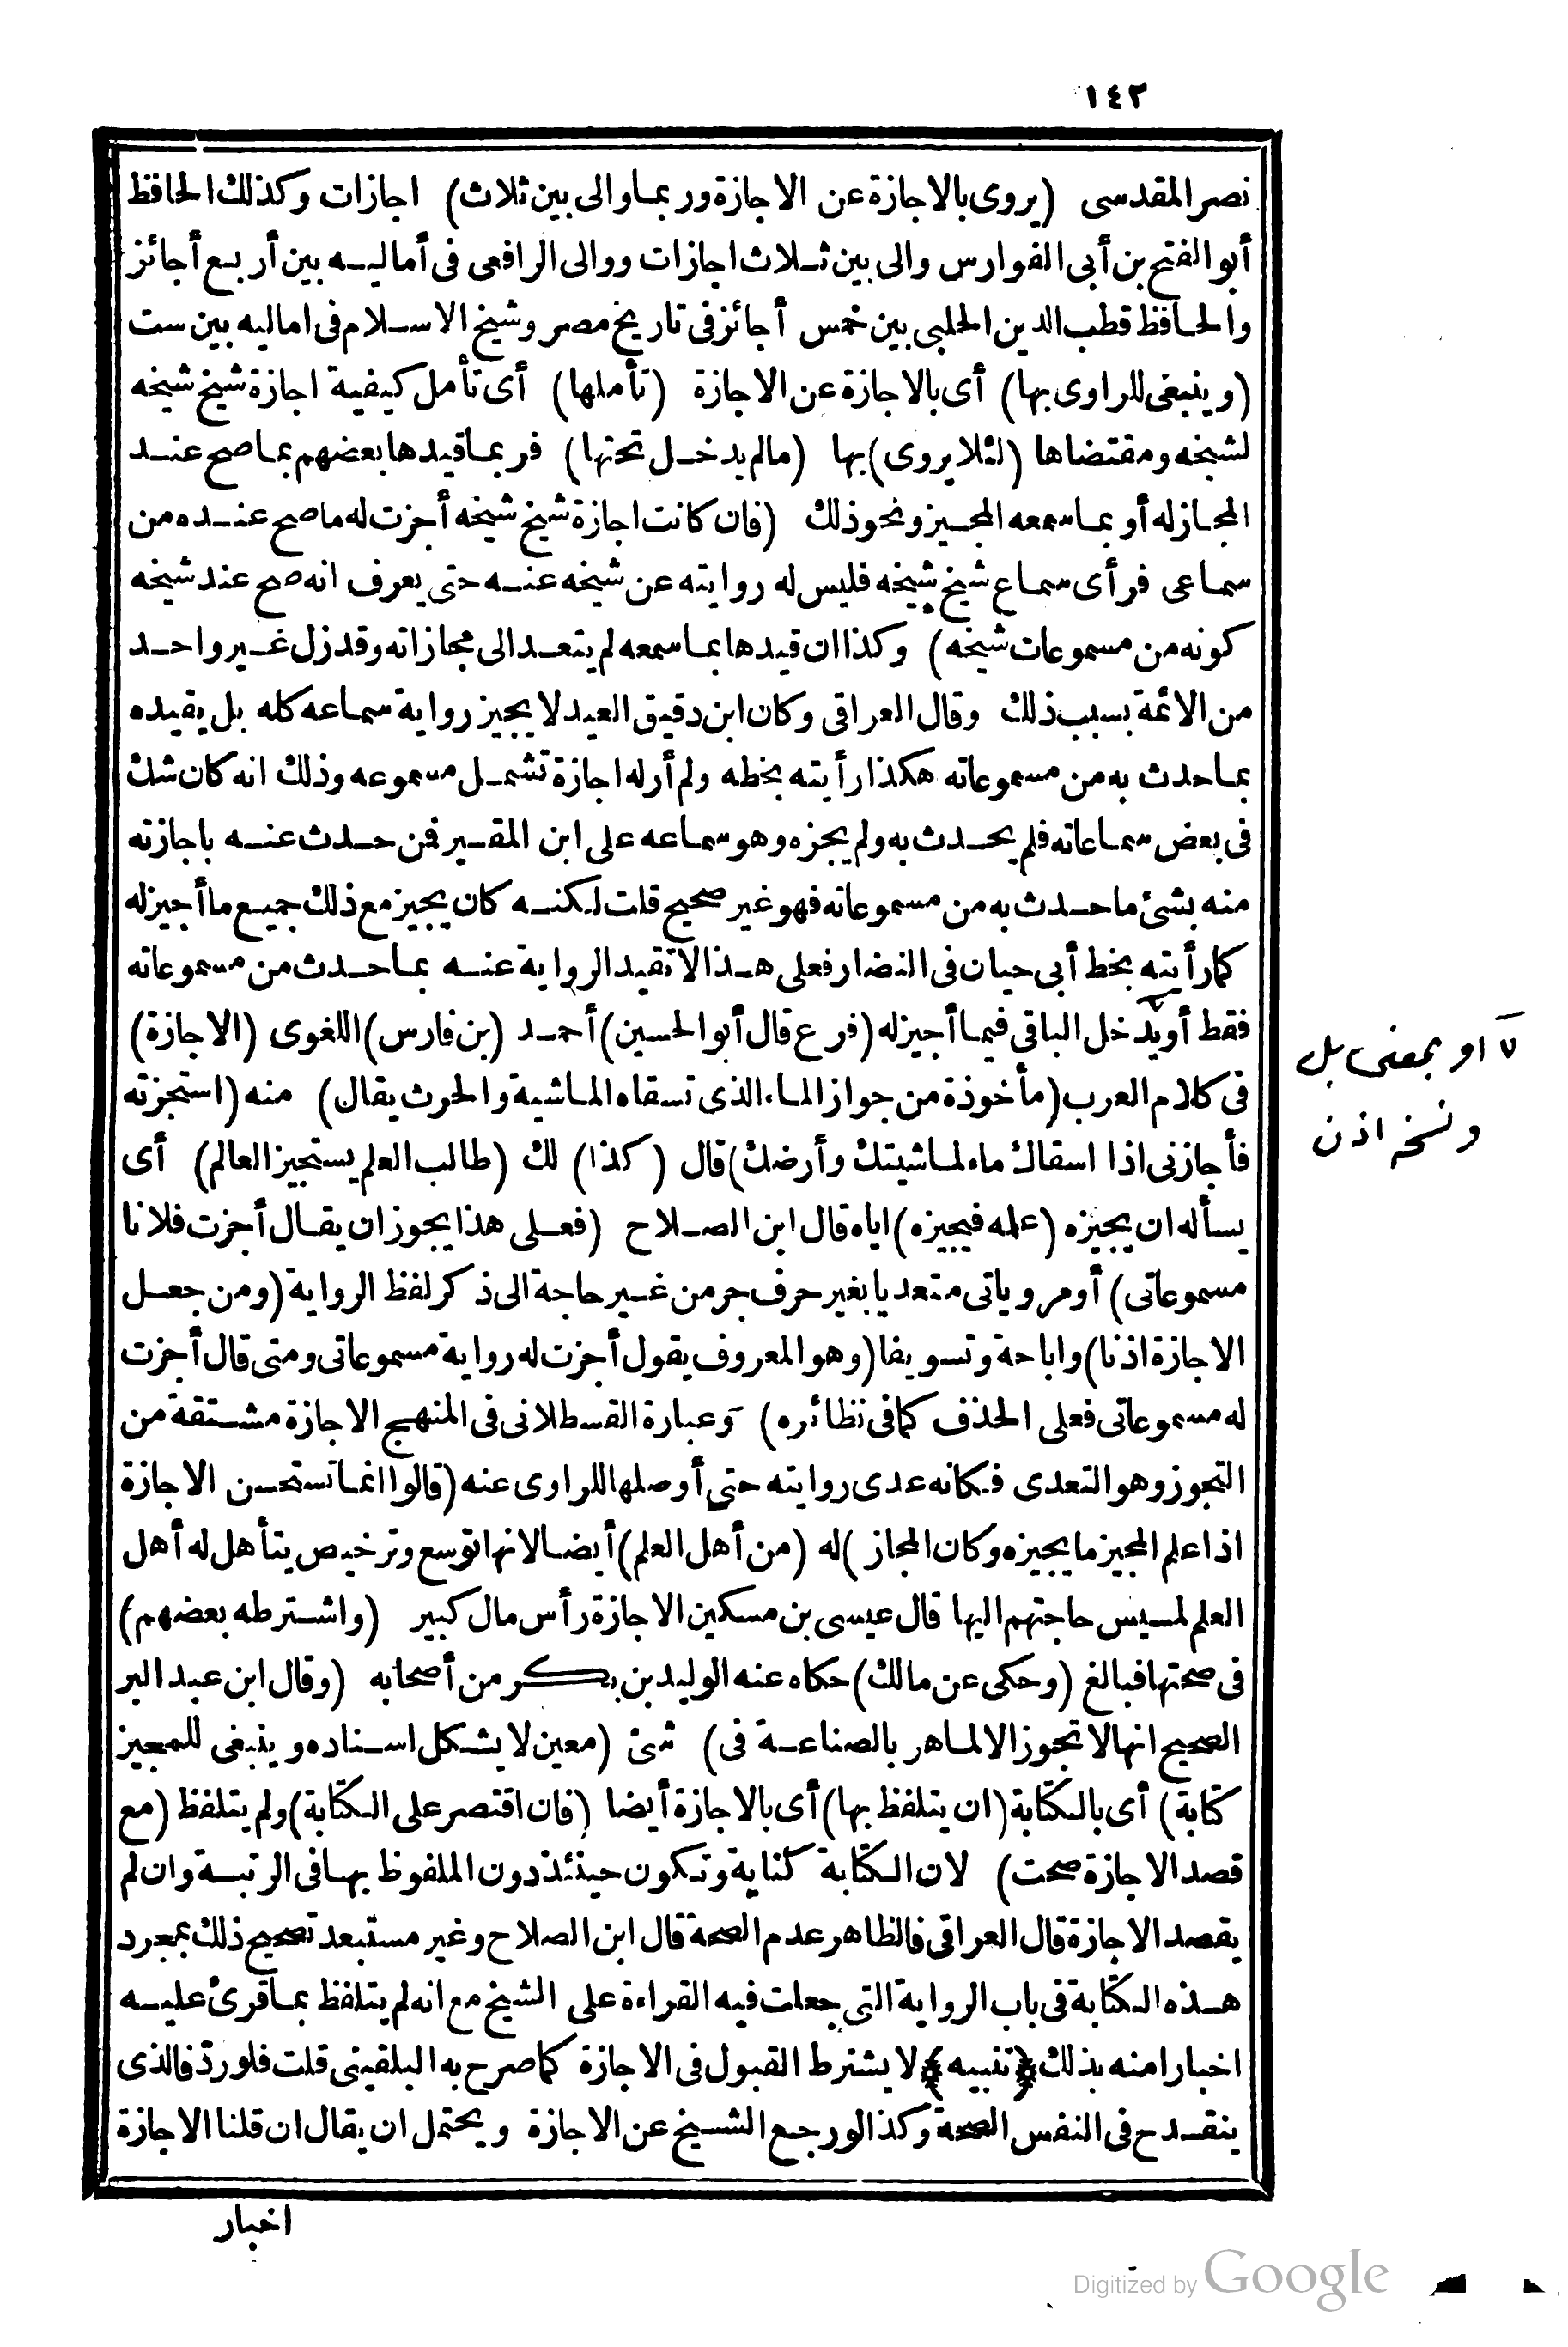 ١٤٢
نصر المقدسى (يروى بالاجازة عن الاجازة وربما والى بين ثلاث) اجازات وكذلك الحافظ
أبو الفتح بن أبى الفوارس والى بين ثلاث اجازات ووالى الرافعى فى أماليه بين أربع أجائز
والحافظ قطب الدين الحلبى بين خمس أجائز فى تاريخ مصر وشيخ الاسلام فى اماليه بين ست
(وينبغى للراوى بها) أى بالاجازة عن الاجازة (تأملها) أى تأمل كيفية اجازة شيخ شيخه
لشيخه ومقتضاها (لئلا يروى) بها (مالم يدخل تحتها) فربما قيدها بعضهم بما صح عند
المجاز له أو بما سمعه المجيز ونحو ذلك (فان كانت اجازة شيخ شيخه أجزت له ما صح عنده من
سماعى فرأى سماع شيخ شيخه فليس له روايته عن شيخه عنه حتى يعرف انه صح عند شيخه
كونه من مسموعات شيخه) وكذا ان قيدها بما سمعه لم يتعد الى مجازاته وقد زل غير واحد
من الائمة بسبب ذلك وقال العراقى وكان ابن دقيق العيد لا يجيز رواية سماعه كله بل يقيده
بما حدث به من مسموعاته هكذا رأيته بخطه ولم أر له اجازة تشمل مسموعه وذلك انه كان شك
فى بعض سماعاته فلم يحدث به ولم يجزه وهو سماعه على ابن المقير فمن حدث عنه باجازته
منه بشئ مما حدث به من مسموعاته فهو غير صحيح قلت لكنه كان يجيز مع ذلك جميع ما أجيز له
كما رأيته بخط أبى حيان فى النضار فعلى هذا لا تقيد الرواية عنه بما حدث من مسموعاته
فقط أو يدخل الباقى فيما أجيز له (فرع قال أبو الحسين) أحمد (بن فارس) اللغوى (الاجازة)
فى كلام العرب (مأخوذة من جواز الماء الذى تسقاه الماشية والحرث يقال) منه (استجزته
فأجازنى اذا اسقاك ماء لماشيتك وأرضك) قال (كذا) لك (طالب العلم يستجيز العالم) أى
يسأله ان يجيزه (علمه فيجيزه) اياه قال ابن الصلاح (فعلى هذا يجوز ان يقال أجزت فلانا
مسموعاتى) أو مروياتى متعديا بغير حرف جر من غير حاجة الى ذكر لفظ الرواية (ومن جعل
الاجازة اذنا) واباحة وتسويغا (وهو المعروف يقول أجزت له رواية مسموعاتى ومتى قال أجزت
له مسموعاتى فعلى الحذف كما فى نظائره) وعبارة القسطلانى فى المنهج الاجازة مشتقة من
التجوز وهو التعدى فكانه عدى روايته حتى أوصلها للراوى عنه (قالوا انما تستحسن الاجازة
اذا علم المجيز ما يجيزه وكان المجاز) له (من أهل العلم) أيضا لانها توسع وترخيص يتأهل له أهل
العلم لمسيس حاجتهم اليها قال عيسى بن مسكين الاجازة رأس مال كبير (واشترطه بعضهم)
فى صحتها فبالغ (وحكى عن مالك) حكاه عنه الوليد بن بكر من أصحابه (وقال ابن عبد البر
الصحيح انها لا تجوز الا لماهر بالصناعة فى) شئ (معين لا يشكل اسناده وينبغى للمجيز
كتابة) أى بالكتابة (ان يتلفظ بها) أى بالاجازة أيضا (فان اقتصر على الكتابة) ولم يتلفظ (مع
قصد الاجازة صحت) لان الكتابة كناية وتكون حينئذ دون الملفوظ بها فى الرتبة وان لم
يقصد الاجازة قال العراقى فالظاهر عدم الصحة قال ابن الصلاح وغير مستبعد تصحيح ذلك بمجرد
هذه الكتابة فى باب الرواية التى جعلت فيه القراءة على الشيخ مع انه لم يتلفظ بما قرئ عليه
اخبارا منه بذلك (تنبيه) لا يشترط القبول فى الاجازة كما صرح به البلقينى قلت فلو ردّ فالذى
ينقدح فى النفس الصحة وكذا لو رجع الشيخ عن الاجازة ويحتمل ان يقال ان قلنا الاجازة
اخبار
او بمعنى بل
ونسخه اذن
Digitized by Google